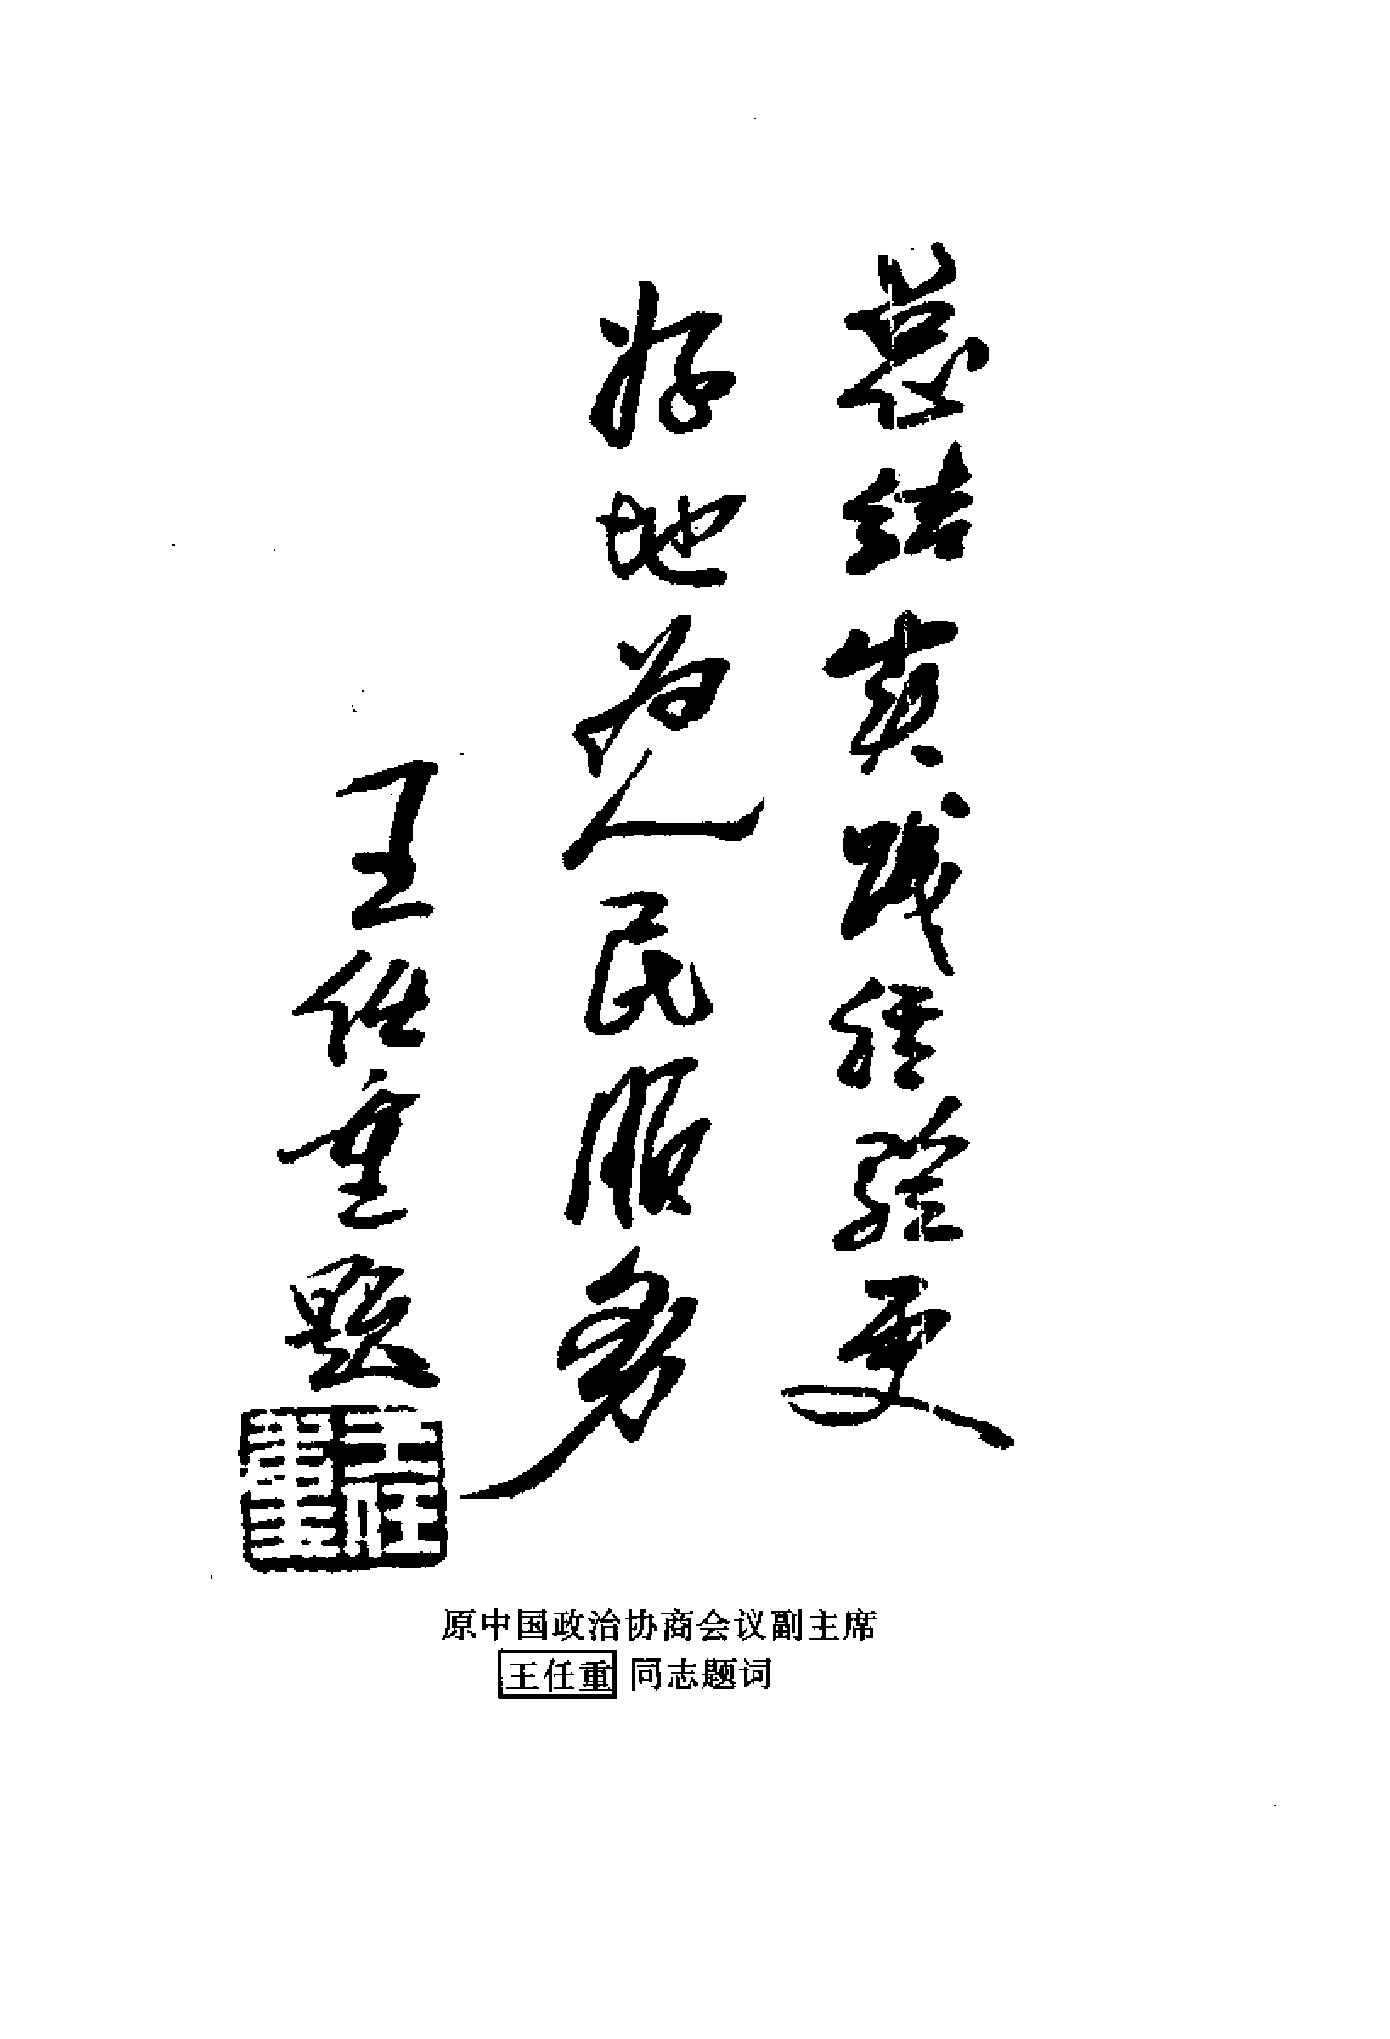 总结实践经验更
好地为人民服务
王任重题
王任重
原中国政治协商会议副主席
王任重 同志题词